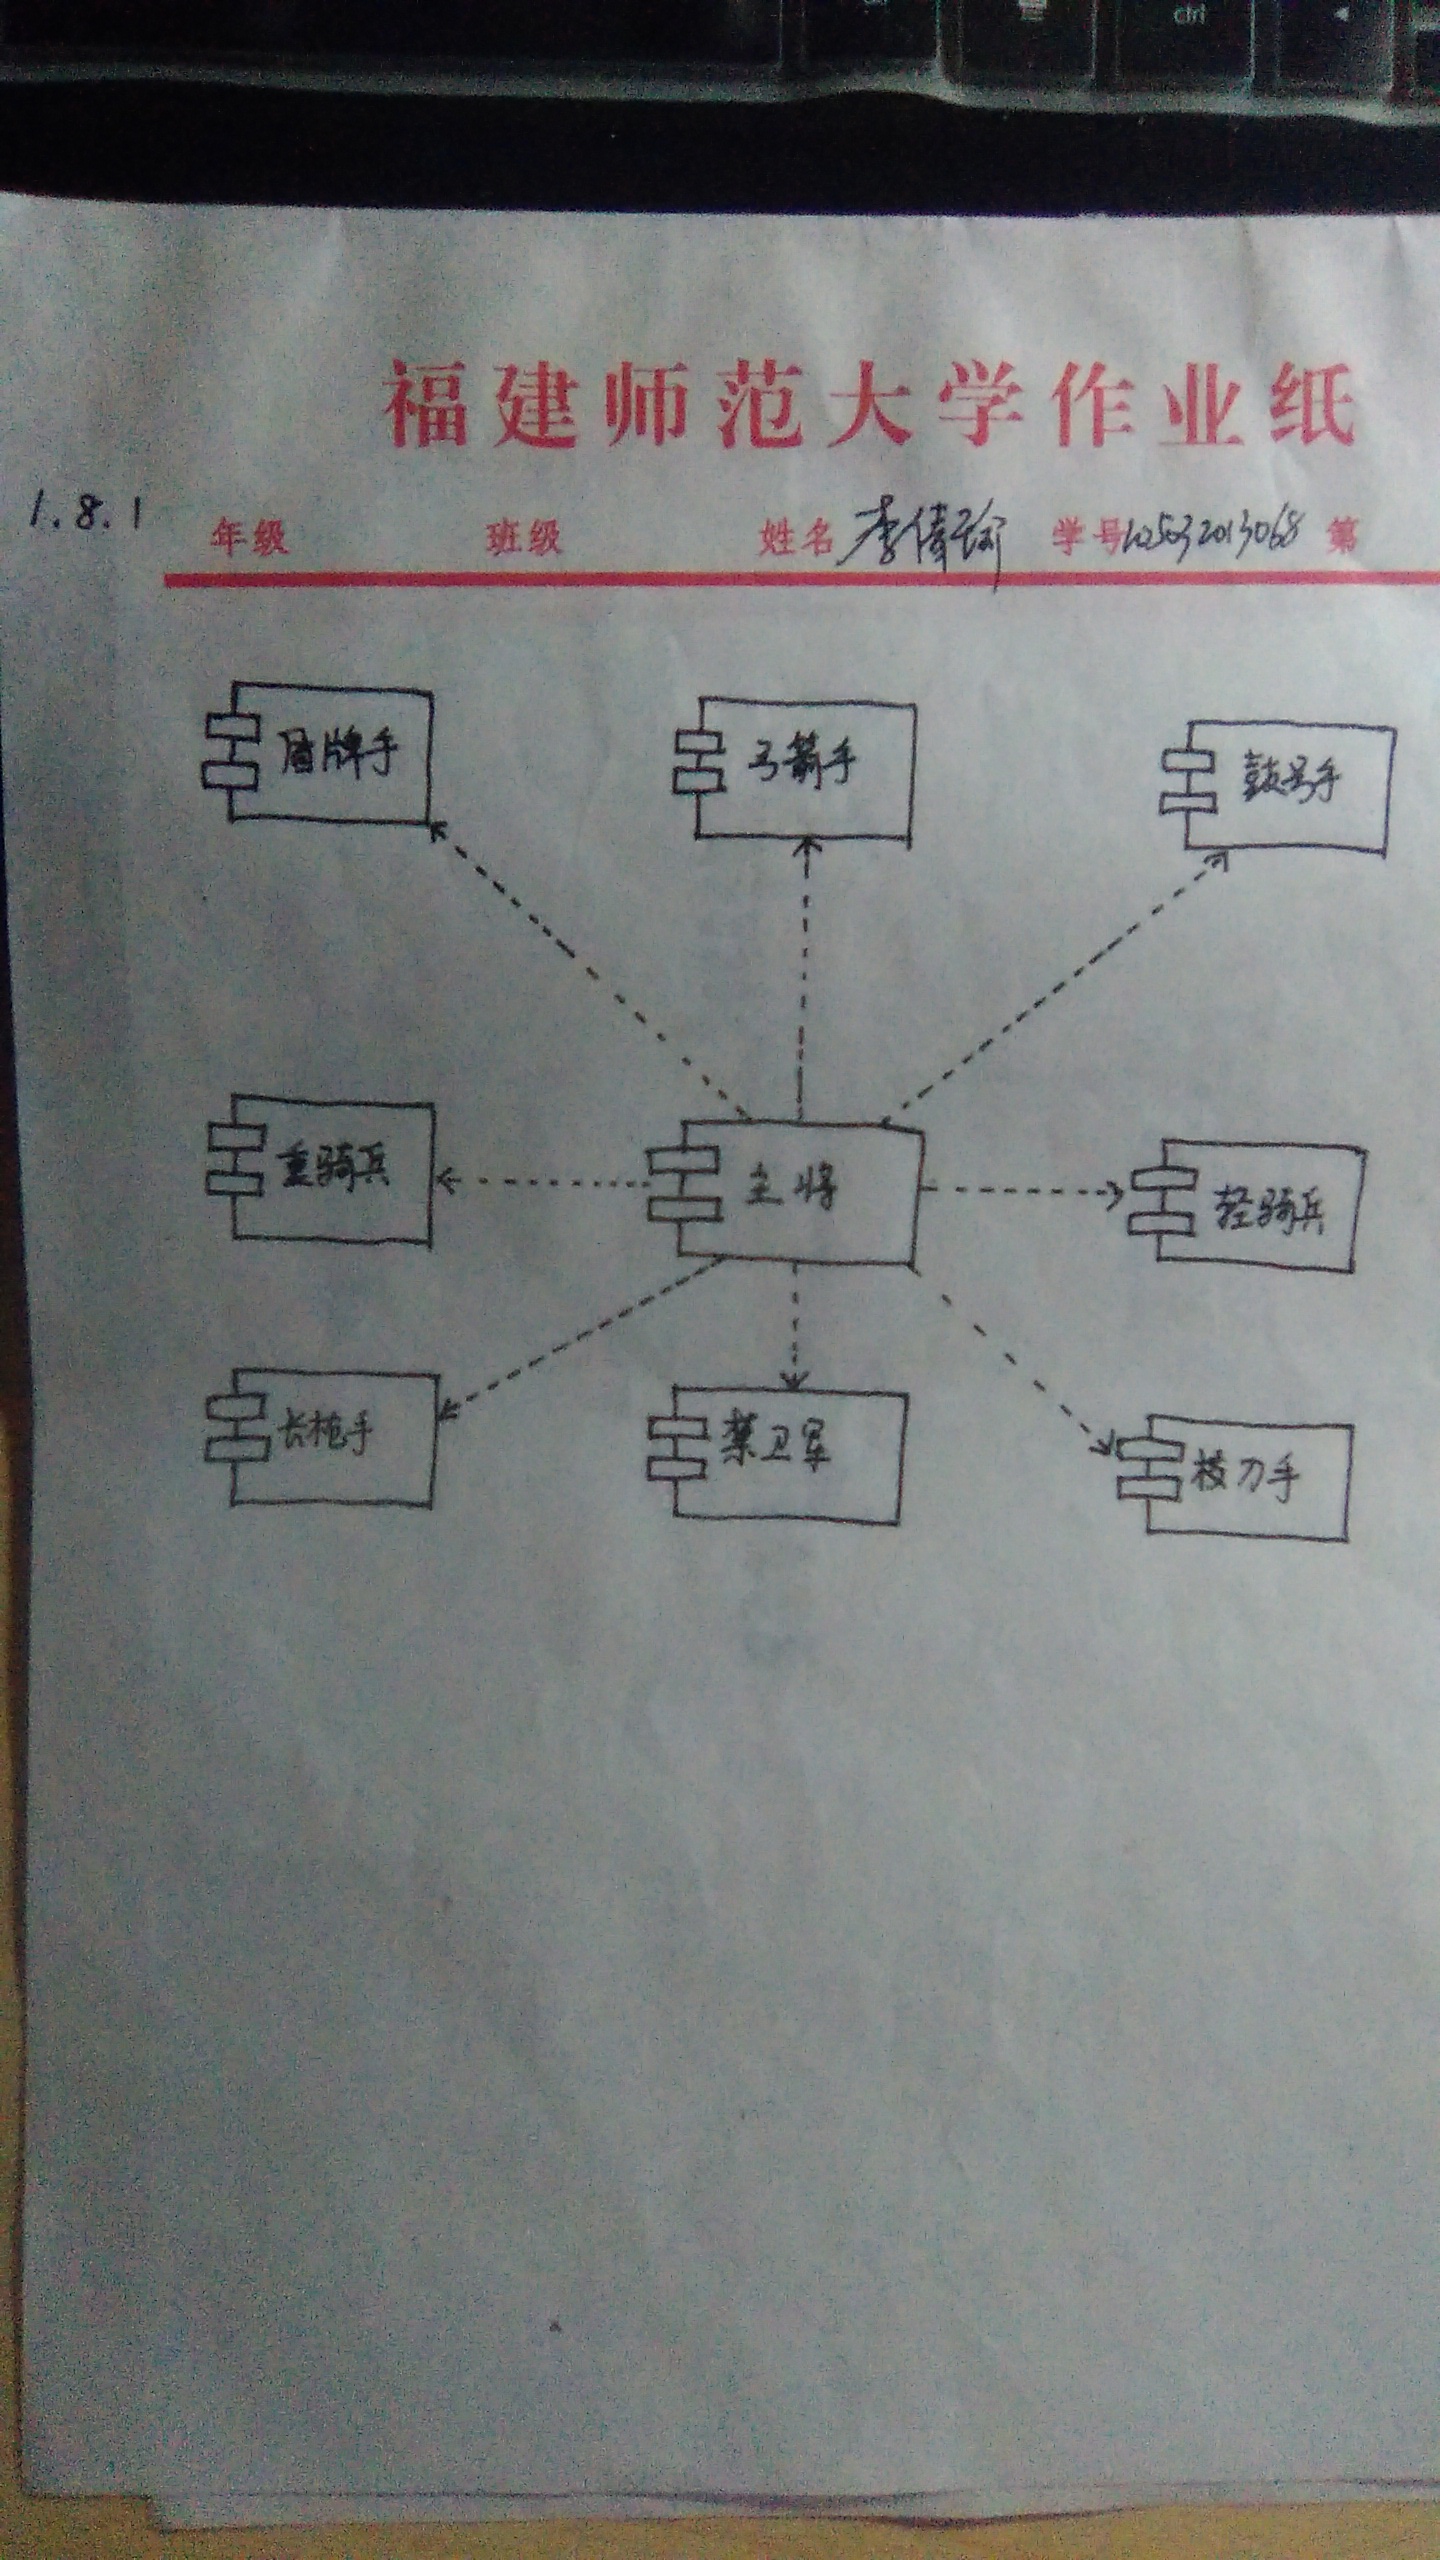 ctrl
福建师范大学作业纸
1.8.1 年级 班级 姓名 李倩瑜 学号 第
盾牌手 弓箭手 鼓号手
重骑兵 主将 轻骑兵
长枪手 禁卫军 刀手